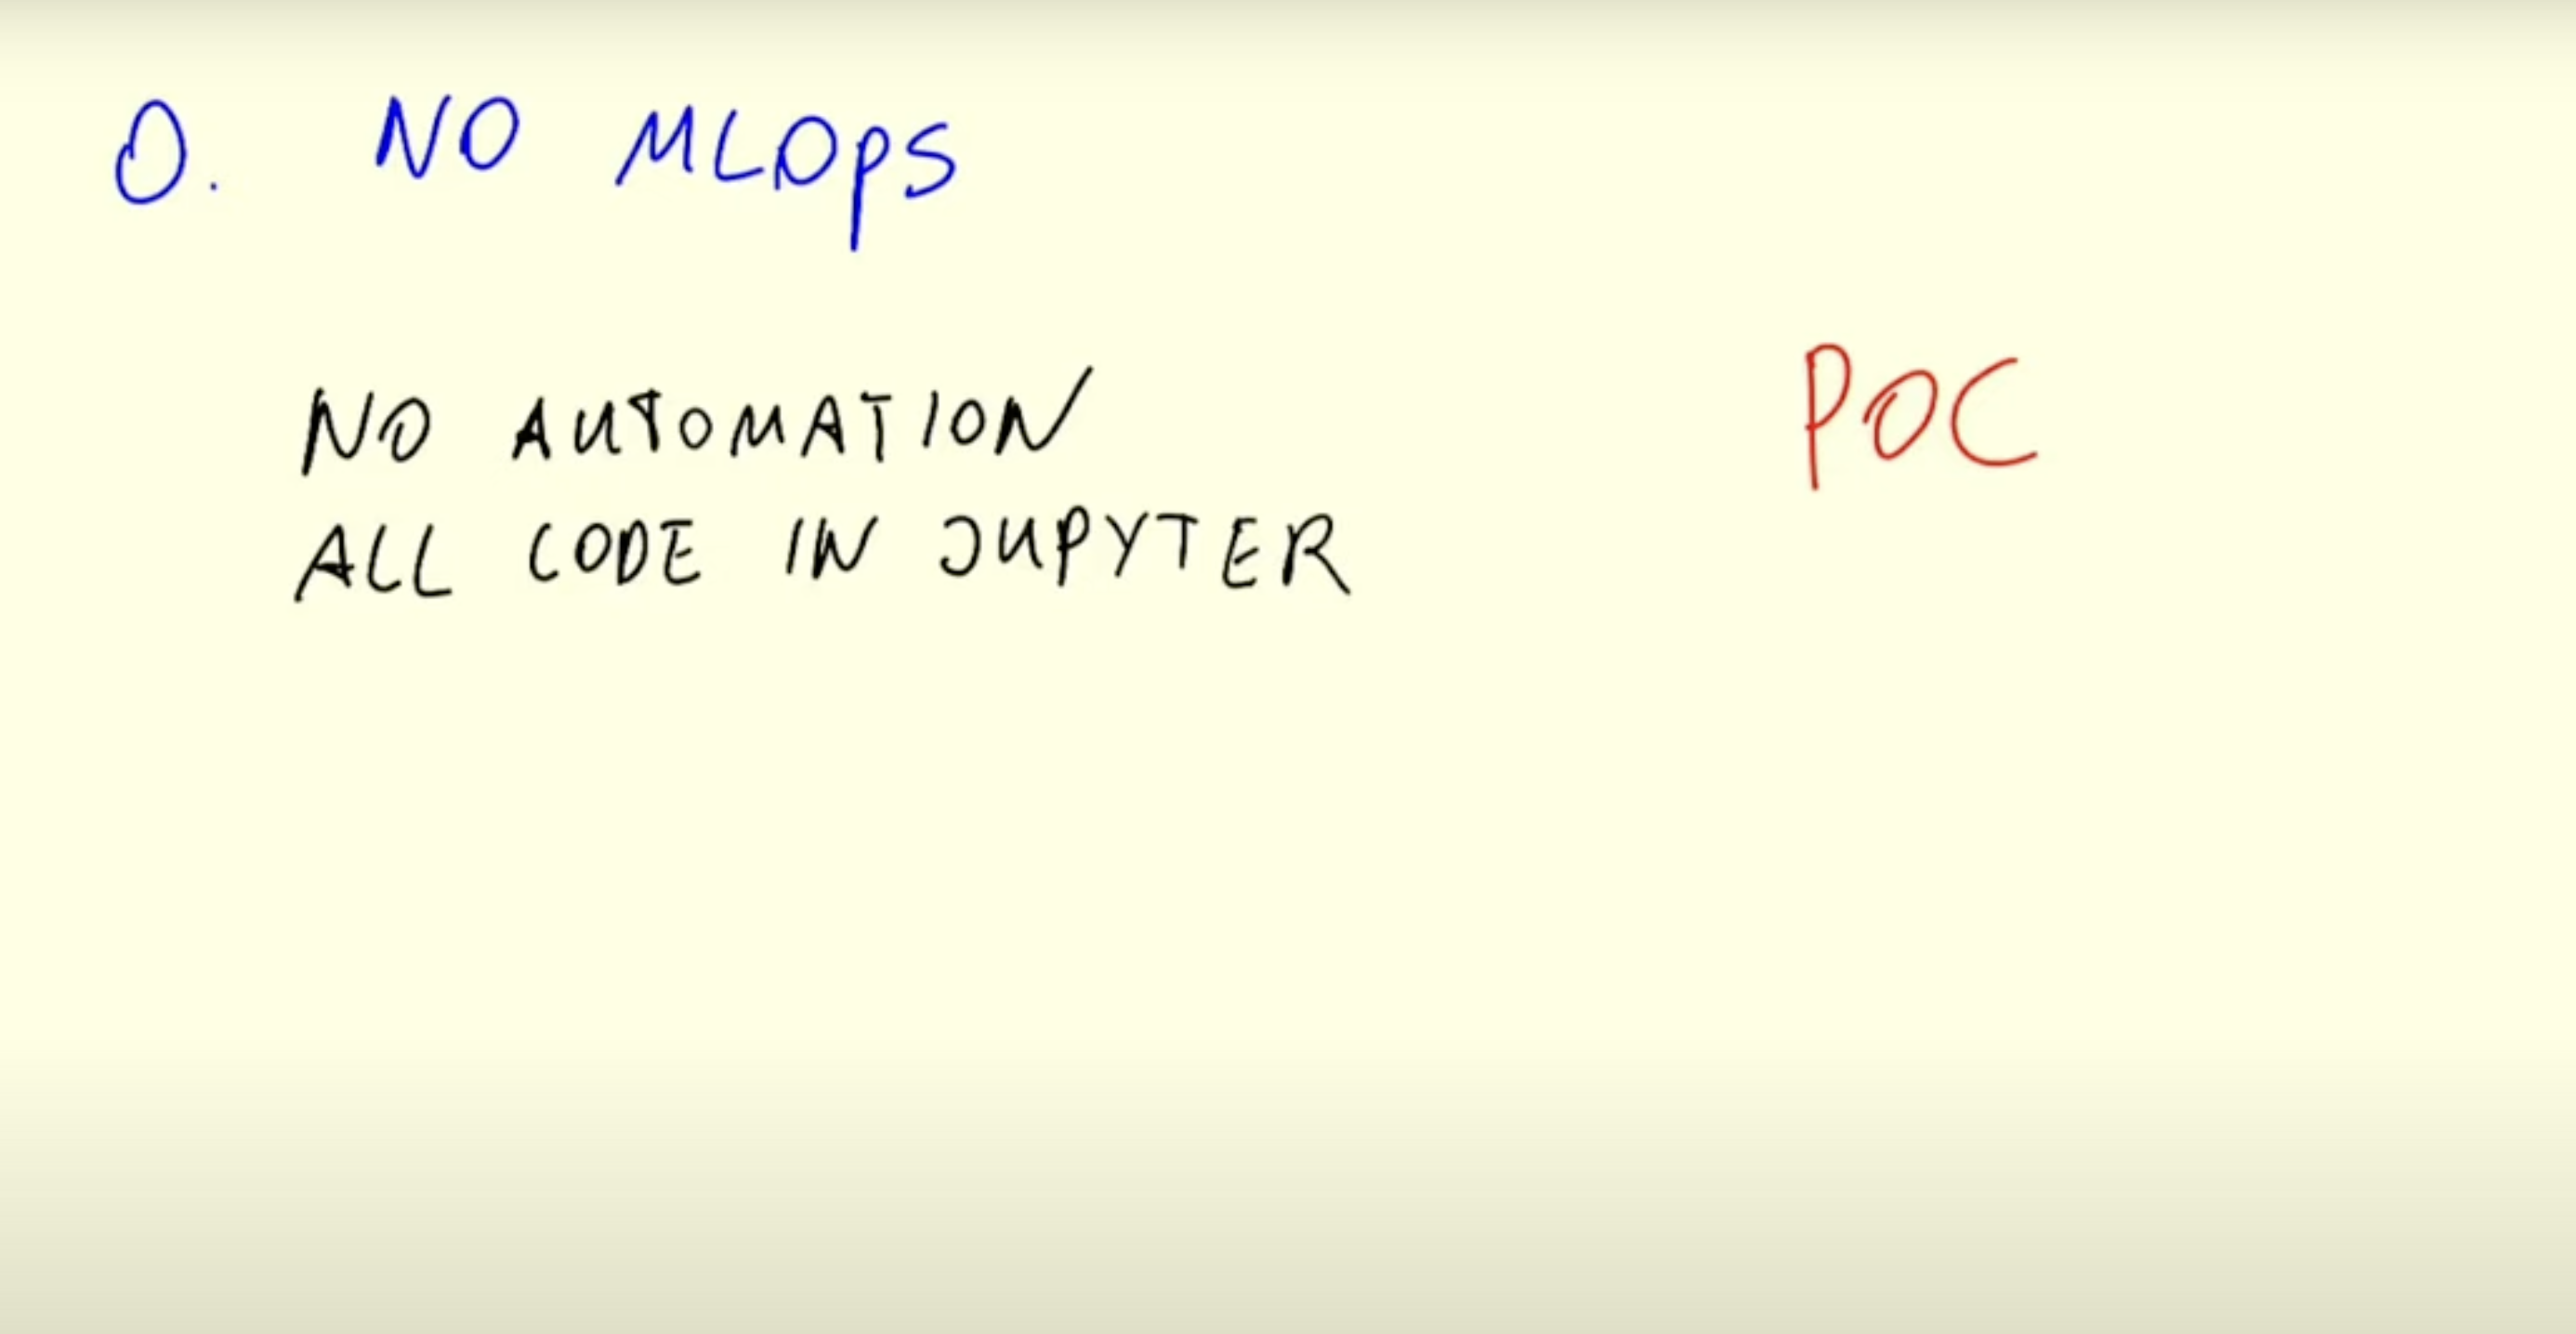 0. NO MLOps
NO AUTOMATION
ALL CODE IN JUPYTER
POC